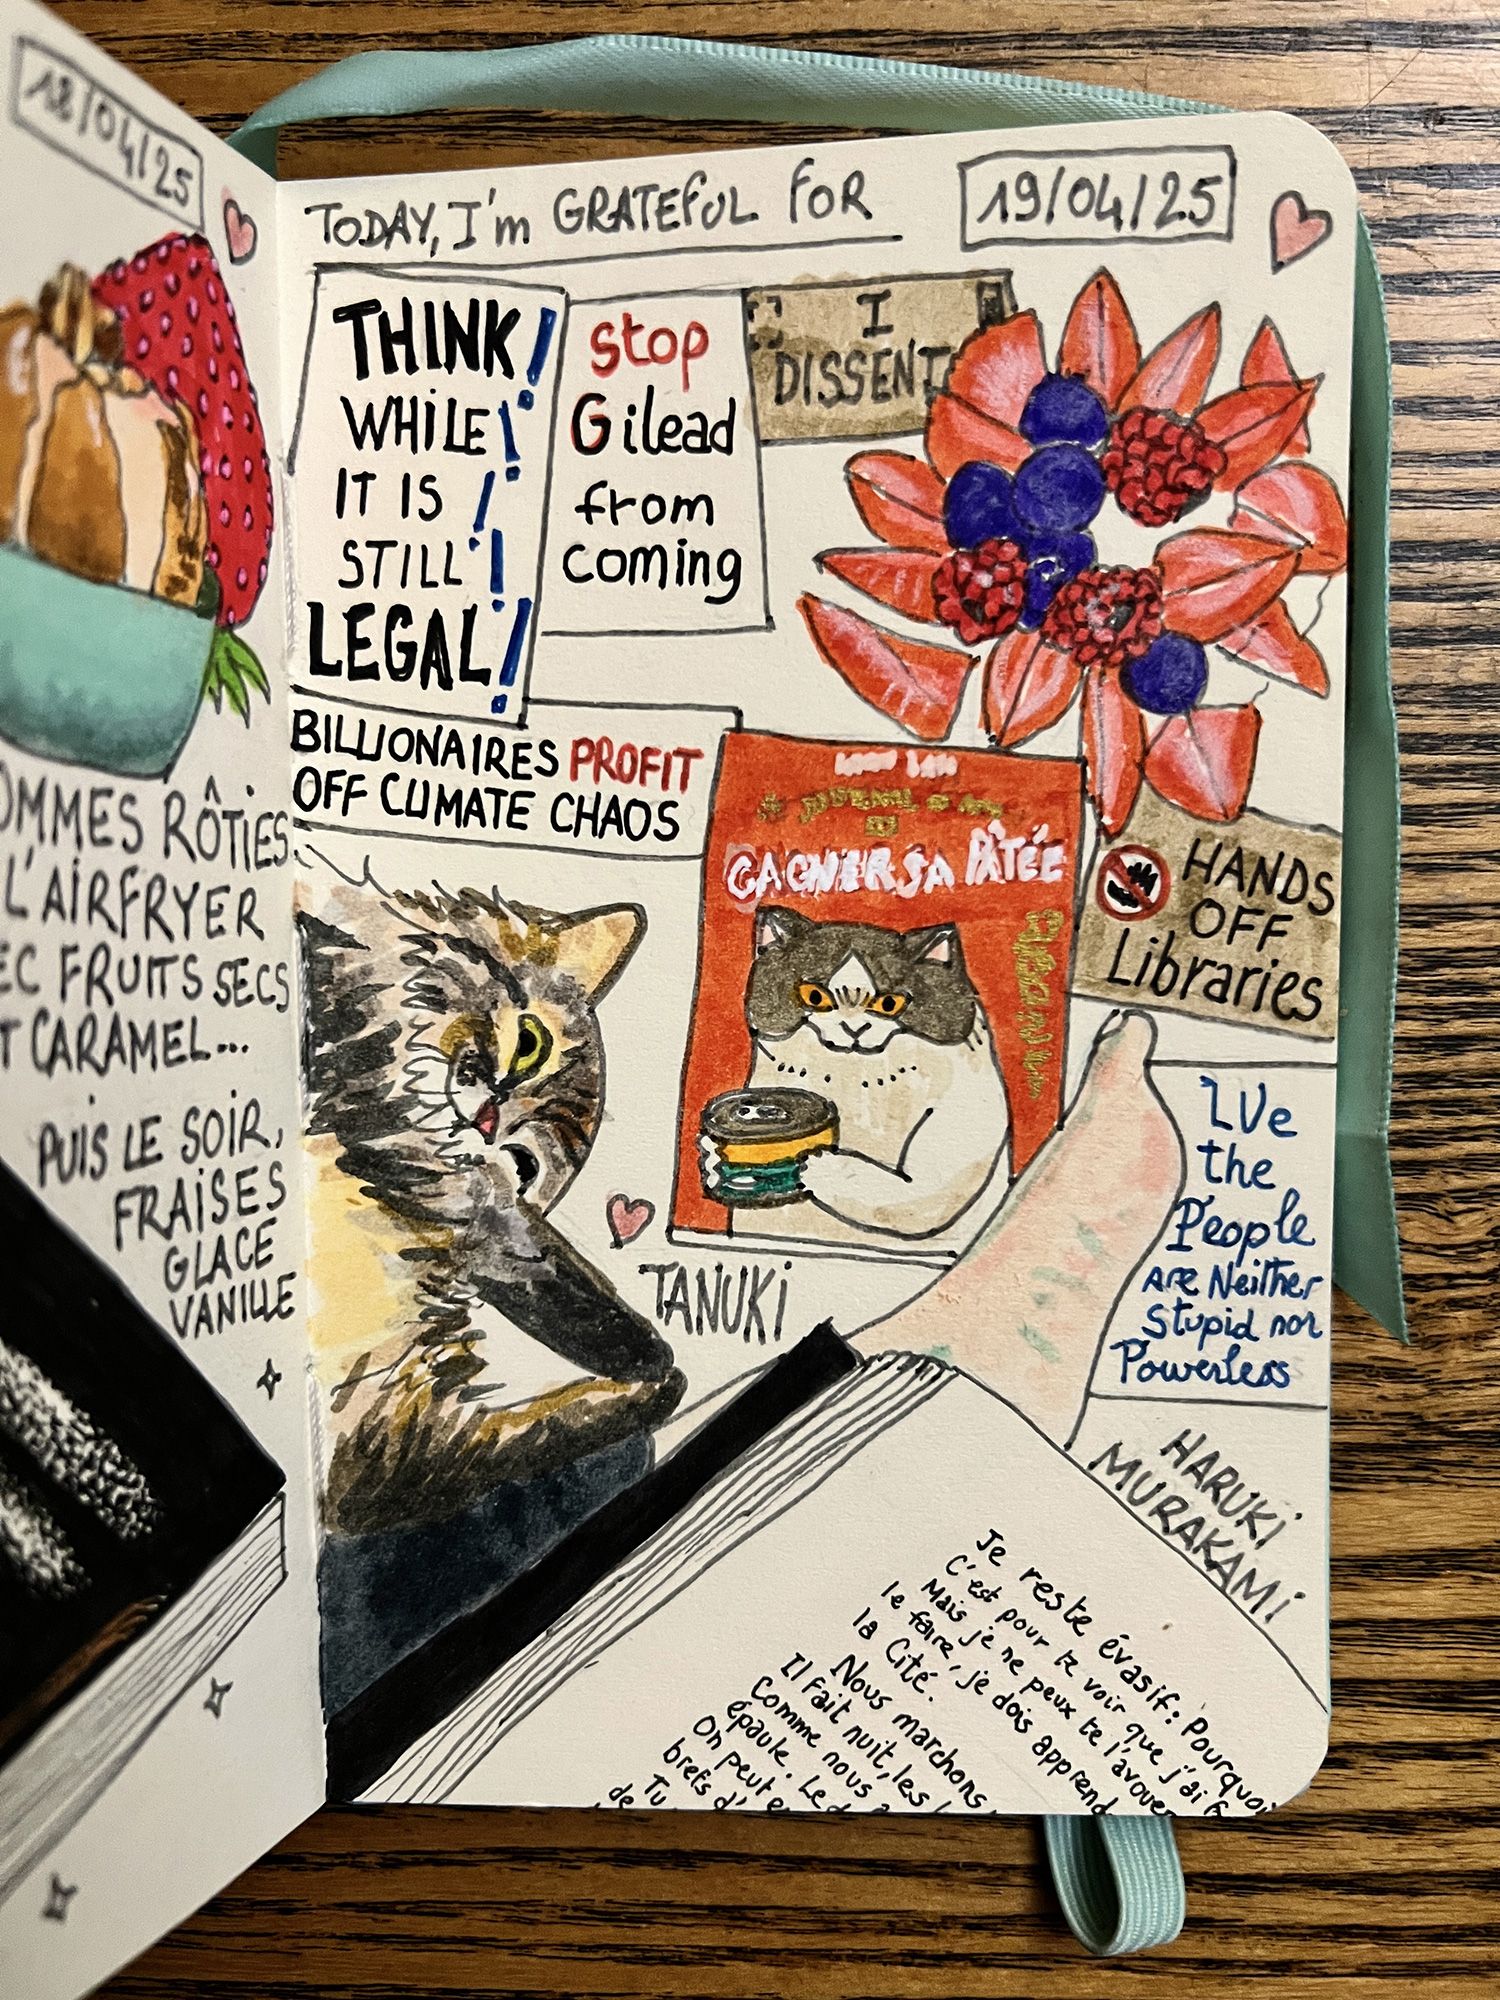 18/04/25
OMMES RÔTIES
L'AIRFRYER
EC FRUITS SECS
T CARAMEL...
PUIS LE SOIR,
FRAISES
GLACE
VANILLE
TODAY, I'm GRATEFUL FOR
19/04/25
THINK!
WHILE!
IT IS!
STILL!
LEGAL!
stop
Gilead
from
coming
I
DISSENT
BILLIONAIRES PROFIT
OFF CLIMATE CHAOS
JOURNAL
GAGNER SA PÂTÉE
HANDS
OFF
Libraries
TANUKI
the
People
Are Neither
Stupid nor
Powerless
HARUKI
MURAKAMI
Je reste évasif: Pourquoi
C'est pour te voir que j'ai f
Mais je ne peux te l'avouer
le faire, je dois apprend
la Cité.
Nous marchons
Il fait nuit, les
Comme nous
épaule. Le
On peut e
brefs d'
Tu
de